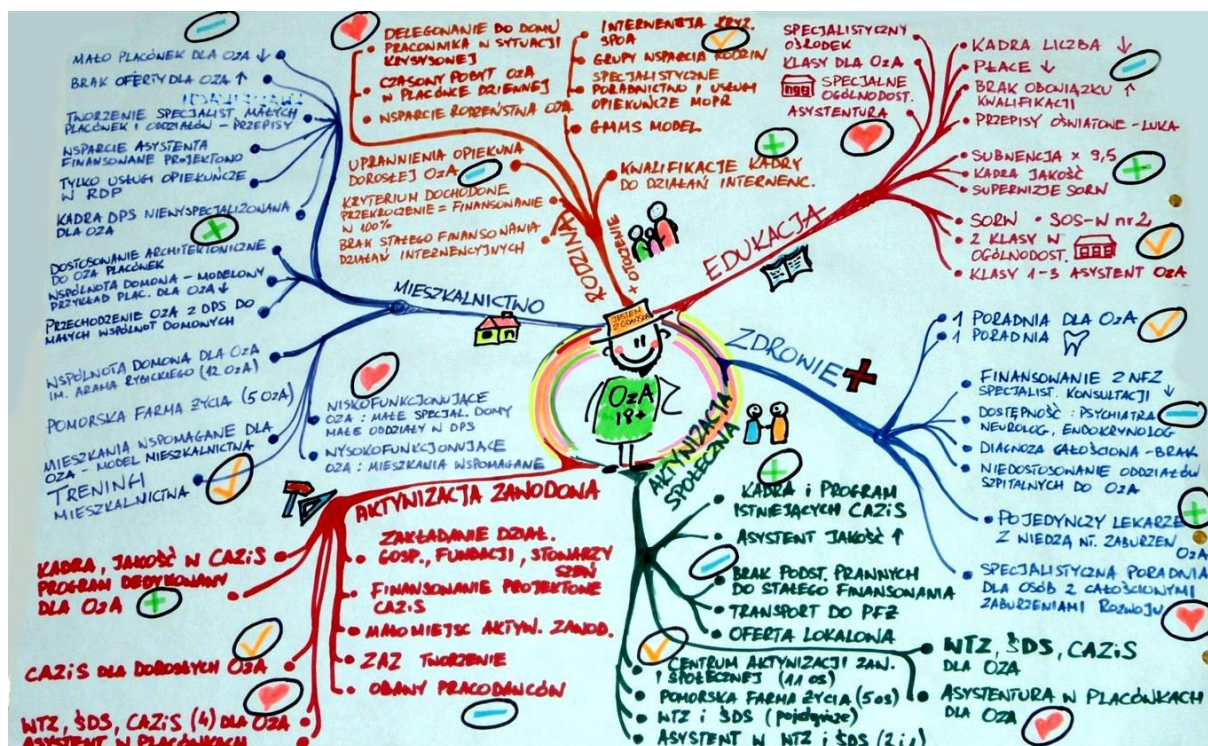 MAŁO PLACÓWEK DLA OZA ↓
BRAK OFERTY DLA OZA ↑
TWORZENIE SPECJALIST. MAŁYCH
PLACÓWEK I ODDZIAŁÓW – PRZEPISY
WSPARCIE ASYSTENTA
FINANSOWANE PROJEKTOWO
TYLKO USŁUGI OPIEKUŃCZE
W RDP
KADRA DPS NIEWYSPECJALIZOWANA
DLA OZA
DOSTOSOWANIE ARCHITEKTONICZNE
DO OZA PLACÓWEK
WSPÓLNOTA DOMOWA – MODELOWY
PRZYKŁAD PLAC. DLA OZA ↓
PRZECHODZENIE OZA Z DPS DO
MAŁYCH WSPÓLNOT DOMOWYCH
WSPÓLNOTA DOMOWA DLA OZA
(12 OZA)
POMORSKA FARMA ŻYCIA (5 OZA)
MIESZKANIA WSPOMAGANE DLA
OZA – MODEL MIESZKALNICTWA
TRENINGI
MIESZKALNICTWA
NISKOFUNKCJONUJĄCE
OZA : MAŁE SPECJAL. DOMY
MAŁE ODDZIAŁY W DPS
WYSOKOFUNKCJONUJĄCE
OZA : MIESZKANIA WSPOMAGANE
MIESZKALNICTWO
DELEGOWANIE DO DOMU
PRACOWNIKA W SYTUACJI
KRYZYSOWEJ
CZASOWY POBYT OZA
W PLACÓWCE DZIENNEJ
WSPARCIE RODZEŃSTWA OZA
UPRAWNIENIA OPIEKUNA
DOROSŁEJ OZA
KRYTERIUM DOCHODOWE
PRZEKROCZENIE = FINANSOWANIE
W 100%
BRAK STAŁEGO FINANSOWANIA
DZIAŁAŃ INTERWENCYJNYCH
INTERWENCJA KRYZ.
SPOA
GRUPY WSPARCIA RODZIN
SPECJALISTYCZNE
PORADNICTWO I USŁUGI
OPIEKUŃCZE MOPR
GMMS MODEL
KWALIFIKACJE KADRY
DO DZIAŁAŃ INTERWENC.
RODZINA
+ OTOCZENIE
SPECJALISTYCZNY
OŚRODEK
KLASY DLA OZA
SPECJALNE
OGÓLNODOST.
ASYSTENTURA
KADRA LICZBA ↓
PŁACE ↓
BRAK OBOWIĄZKU ↑
KWALIFIKACJI
PRZEPISY OŚWIATOWE – LUKA
SUBWENCJA × 9,5
KADRA JAKOŚĆ
SUPERWIZJE SORW
SORW • SOS-W nr 2
2 KLASY W
OGÓLNODOST.
KLASY 1-3 ASYSTENT OZA
EDUKACJA
JESTEM
Z GDAŃSKA
OZA
18+
ZDROWIE
1 PORADNIA DLA OZA
1 PORADNIA
FINANSOWANIE Z NFZ
SPECJALIST. KONSULTACJI ↓
DOSTĘPNOŚĆ : PSYCHIATRA
NEUROLOG, ENDOKRYNOLOG
DIAGNOZA CAŁOŚCIOWA – BRAK
NIEDOSTOSOWANIE ODDZIAŁÓW
SZPITALNYCH DO OZA
POJEDYNCZY LEKARZE
Z WIEDZĄ NT. ZABURZEŃ
OZA
SPECJALISTYCZNA PORADNIA
DLA OSÓB Z CAŁOŚCIOWYMI
ZABURZENIAMI ROZWOJU
AKTYWIZACJA
SPOŁECZNA
KADRA i PROGRAM
ISTNIEJĄCYCH CAZiS
ASYSTENT JAKOŚĆ ↑
BRAK PODST. PRAWNYCH
DO STAŁEGO FINANSOWANIA
TRANSPORT DO PFŻ
OFERTA LOKALOWA
CENTRUM AKTYWIZACJI ZAW.
I SPOŁECZNEJ (11 OS)
POMORSKA FARMA ŻYCIA (5 OS)
WTZ i ŚDS (pojedyncze)
ASYSTENT W WTZ i ŚDS
WTZ, ŚDS, CAZiS
DLA OZA
ASYSTENTURA W PLACÓWKACH
DLA OZA
AKTYWIZACJA ZAWODOWA
KADRA, JAKOŚĆ W CAZiS
PROGRAM DEDYKOWANY
DLA OZA
CAZiS DLA DOROSŁYCH OZA
WTZ, ŚDS, CAZiS (4) DLA OZA
ASYSTENT W PLACÓWKACH
ZAKŁADANIE DZIAŁ.
GOSP., FUNDACJI, STOWARZY
SZEŃ
FINANSOWANIE PROJEKTOWE
CAZIS
MAŁO MIEJSC AKTYW. ZAWOD.
ZAZ TWORZENIE
OBAWY PRACODAWCÓW